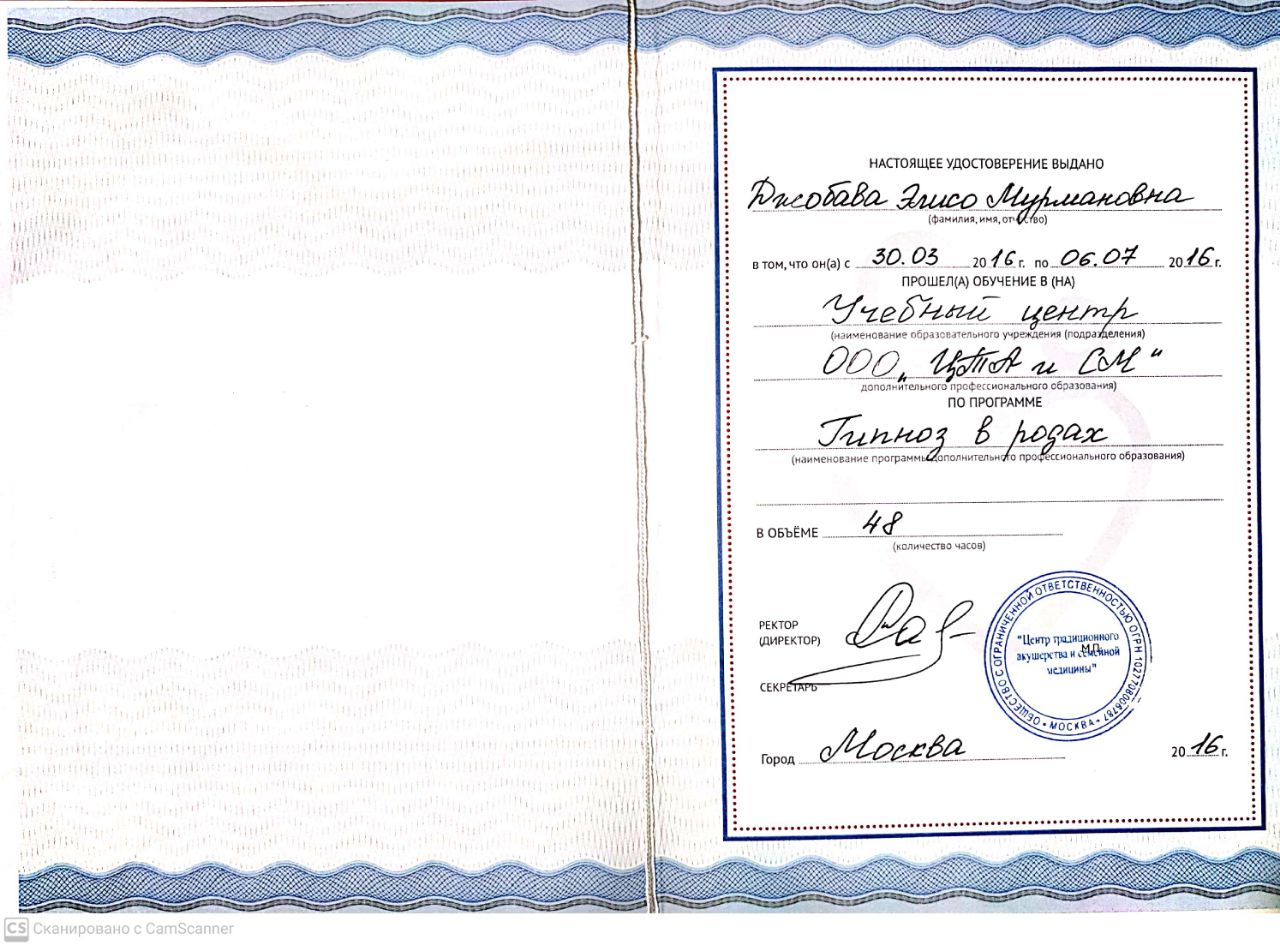 НАСТОЯЩЕЕ УДОСТОВЕРЕНИЕ ВЫДАНО
Джобава Элисо Мурмановна
(фамилия, имя, отчество)
в том, что он(а) с 30.03 2016 г. по 06.07 2016 г.
ПРОШЕЛ(А) ОБУЧЕНИЕ В (НА)
Учебный центр
(наименование образовательного учреждения (подразделения)
ООО „ЦТА и СМ"
дополнительного профессионального образования)
ПО ПРОГРАММЕ
Гипноз в родах
(наименование программы дополнительного профессионального образования)
В ОБЪЁМЕ 48
(количество часов)
РЕКТОР
(ДИРЕКТОР)
СЕКРЕТАРЬ
ОБЩЕСТВО С ОГРАНИЧЕННОЙ ОТВЕТСТВЕННОСТЬЮ ОГРН 1027708006787 • МОСКВА •
"Центр традиционного
акушерства и семейной
медицины"
М.П.
Город Москва 2016 г.
CS Сканировано с CamScanner